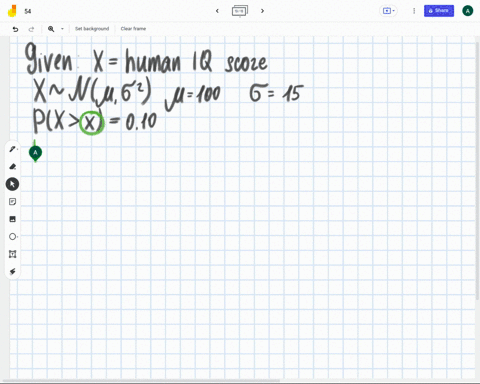 54
5/5
Share
A
Set background
Clear frame
Given: X = human IQ score
X ~ N(μ, σ²) μ = 100 σ = 15
P(X > x) = 0.10
A